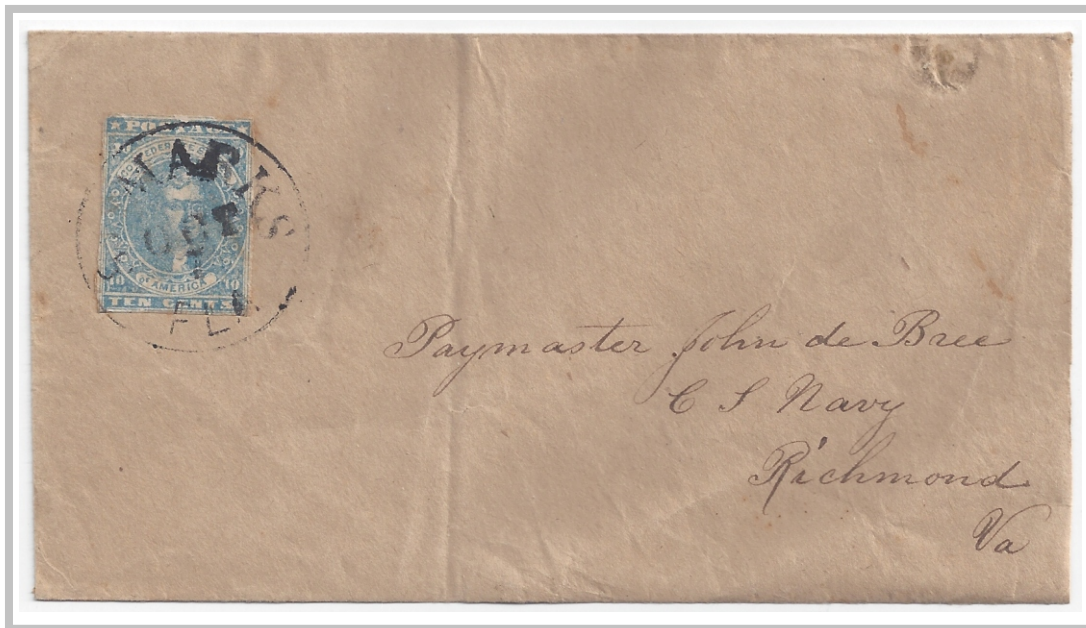 POSTAGE
CONFEDERATE STATES
OF AMERICA
10 10
TEN CENTS
ST. MARKS
OCT
FLA.
Paymaster John de Bree
C S Navy
Richmond
Va